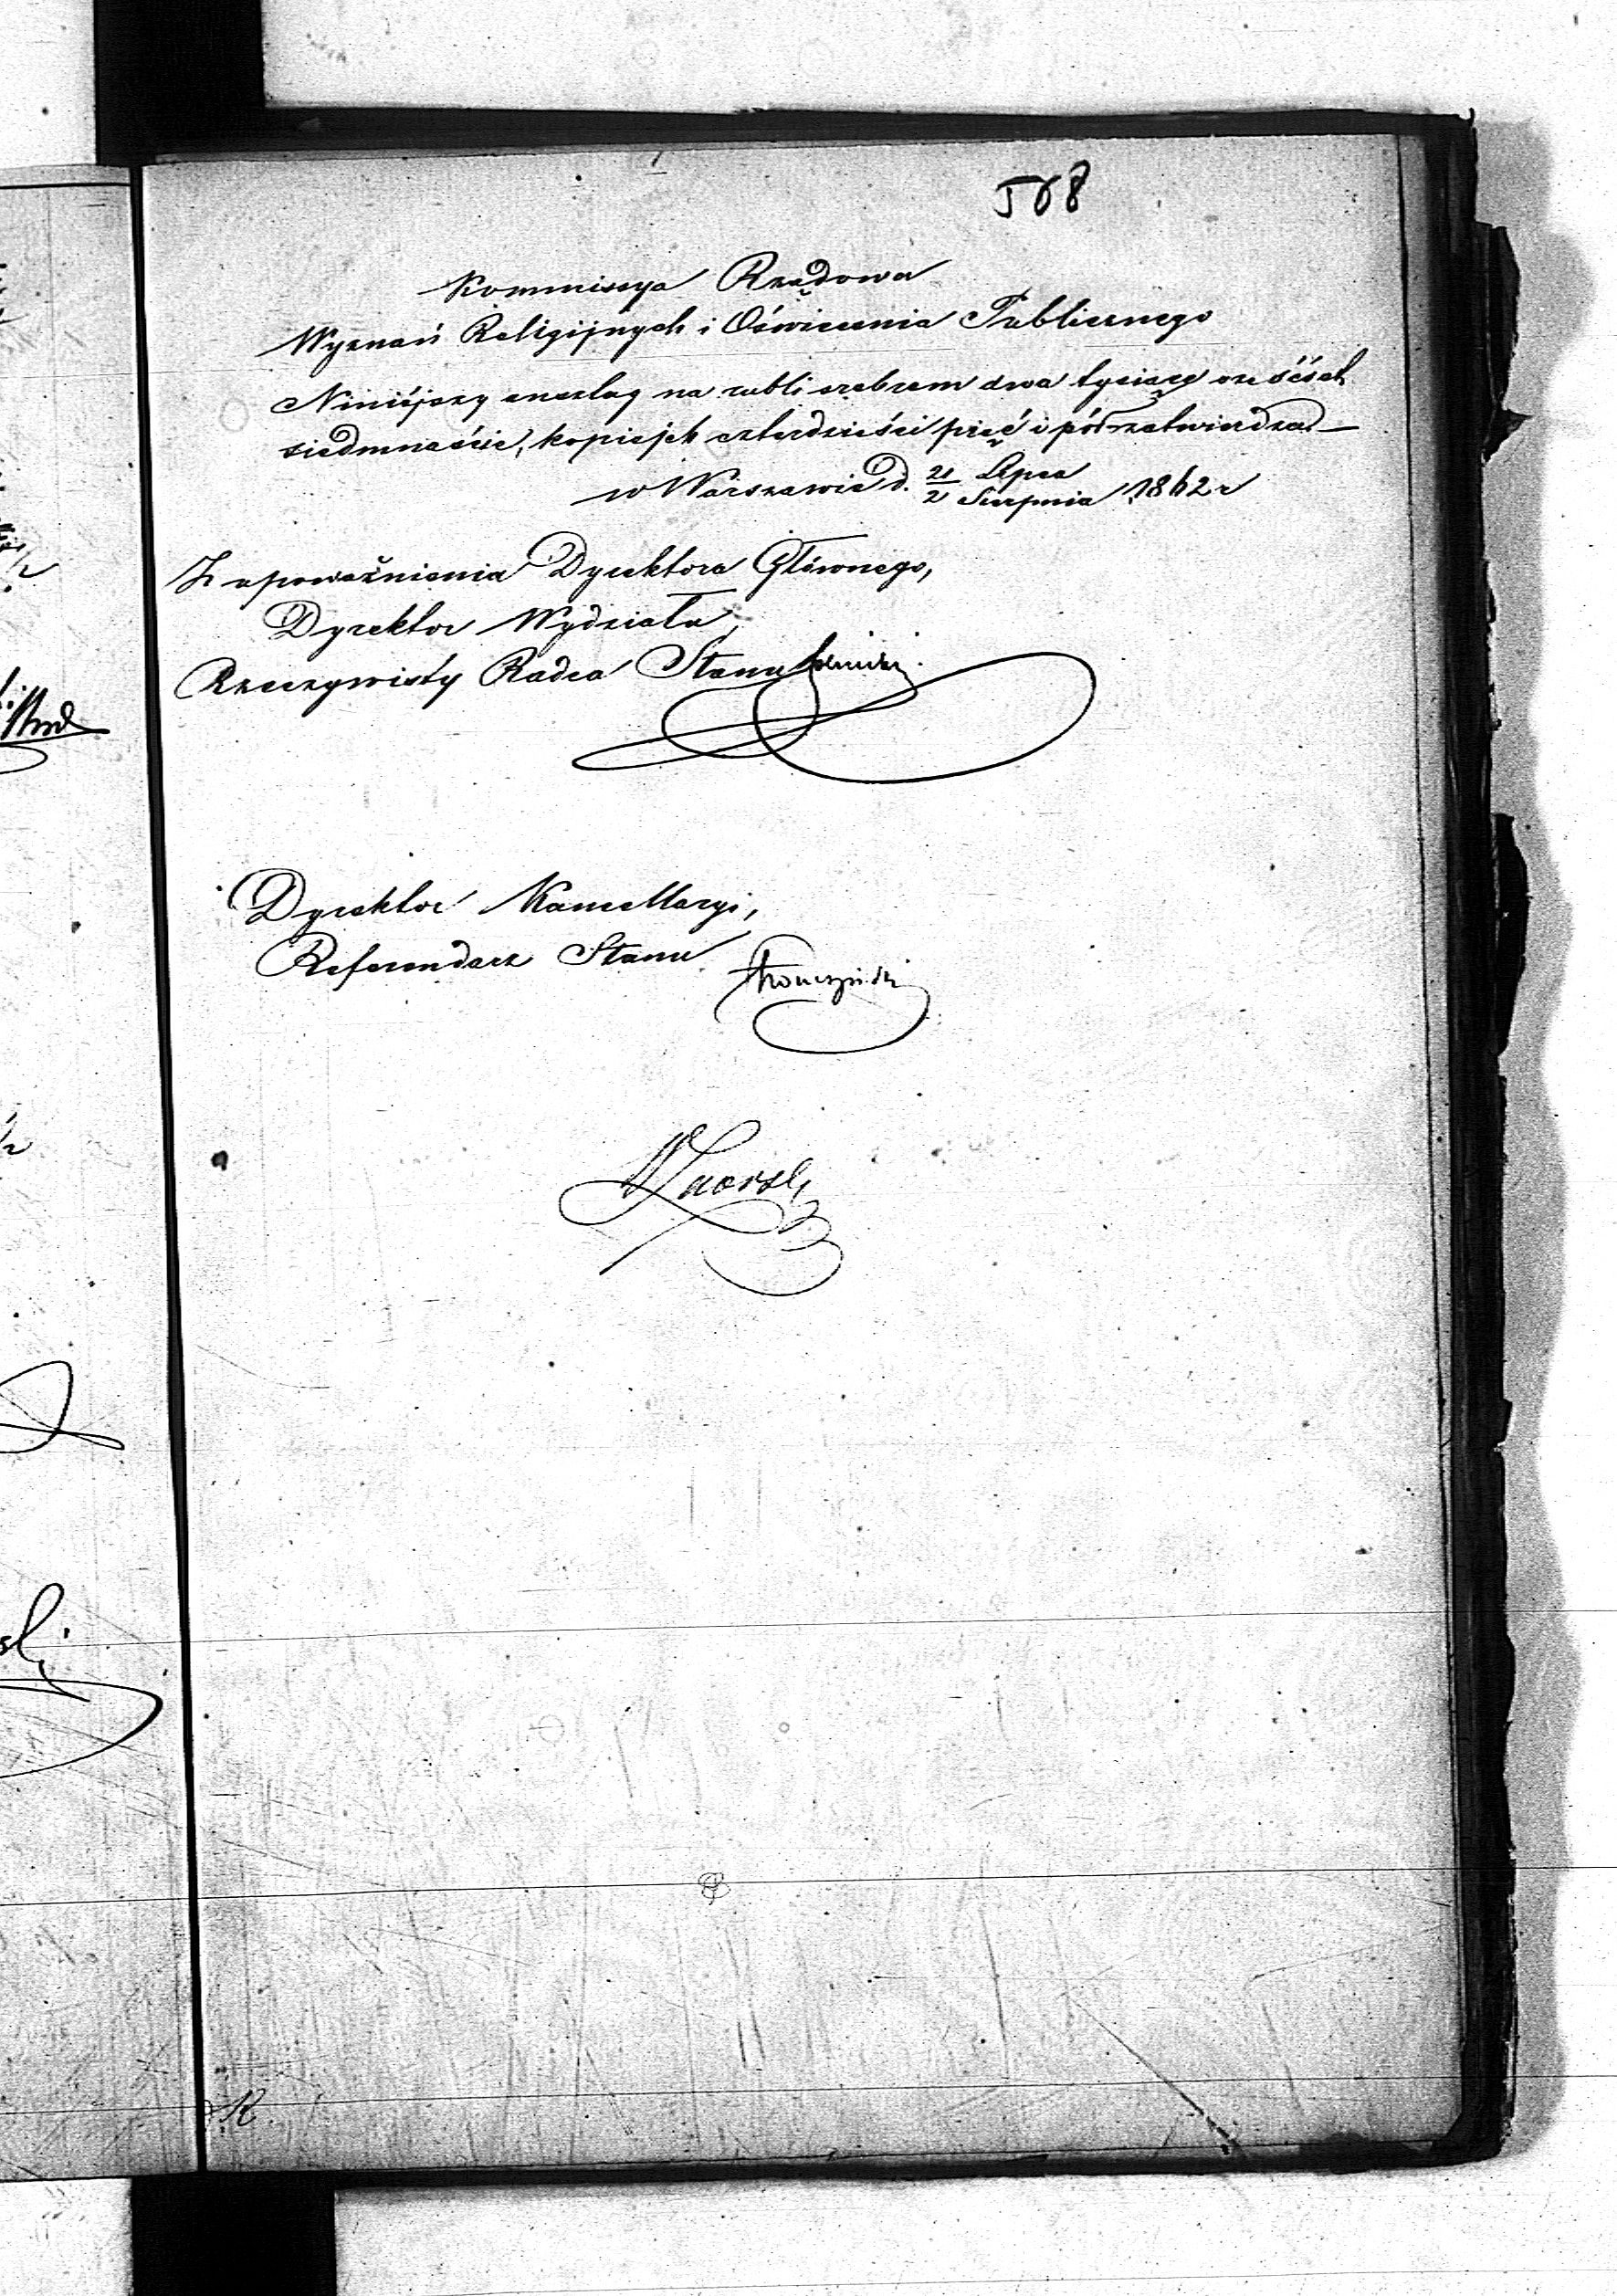 568
Kommissya Rządowa
Wyznań Religijnych i Oświecenia Publicznego
Niniéjszy anszlag na rubli srebrem dwa tysiące sześćset
siedmnaście, kopiejek czterdzieści pięć i pół zatwierdza.—
w Warszawie d. 21/2 Lipca/Sierpnia 1862 r
Z upoważnienia Dyrektora Głównego,
Dyrektor Wydziału,
Rzeczywisty Radca Stanu
Dyrektor Kancellaryi,
Referendarz Stanu